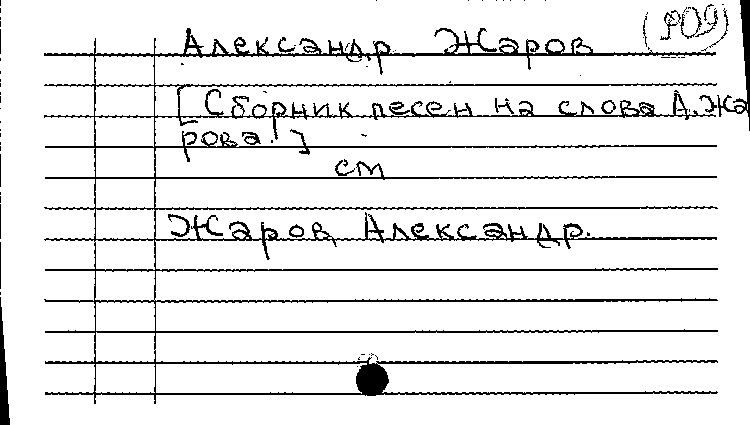 Александр Жаров
[Сборник песен на слова А.Жа
рова.]
см
Жаров Александр.